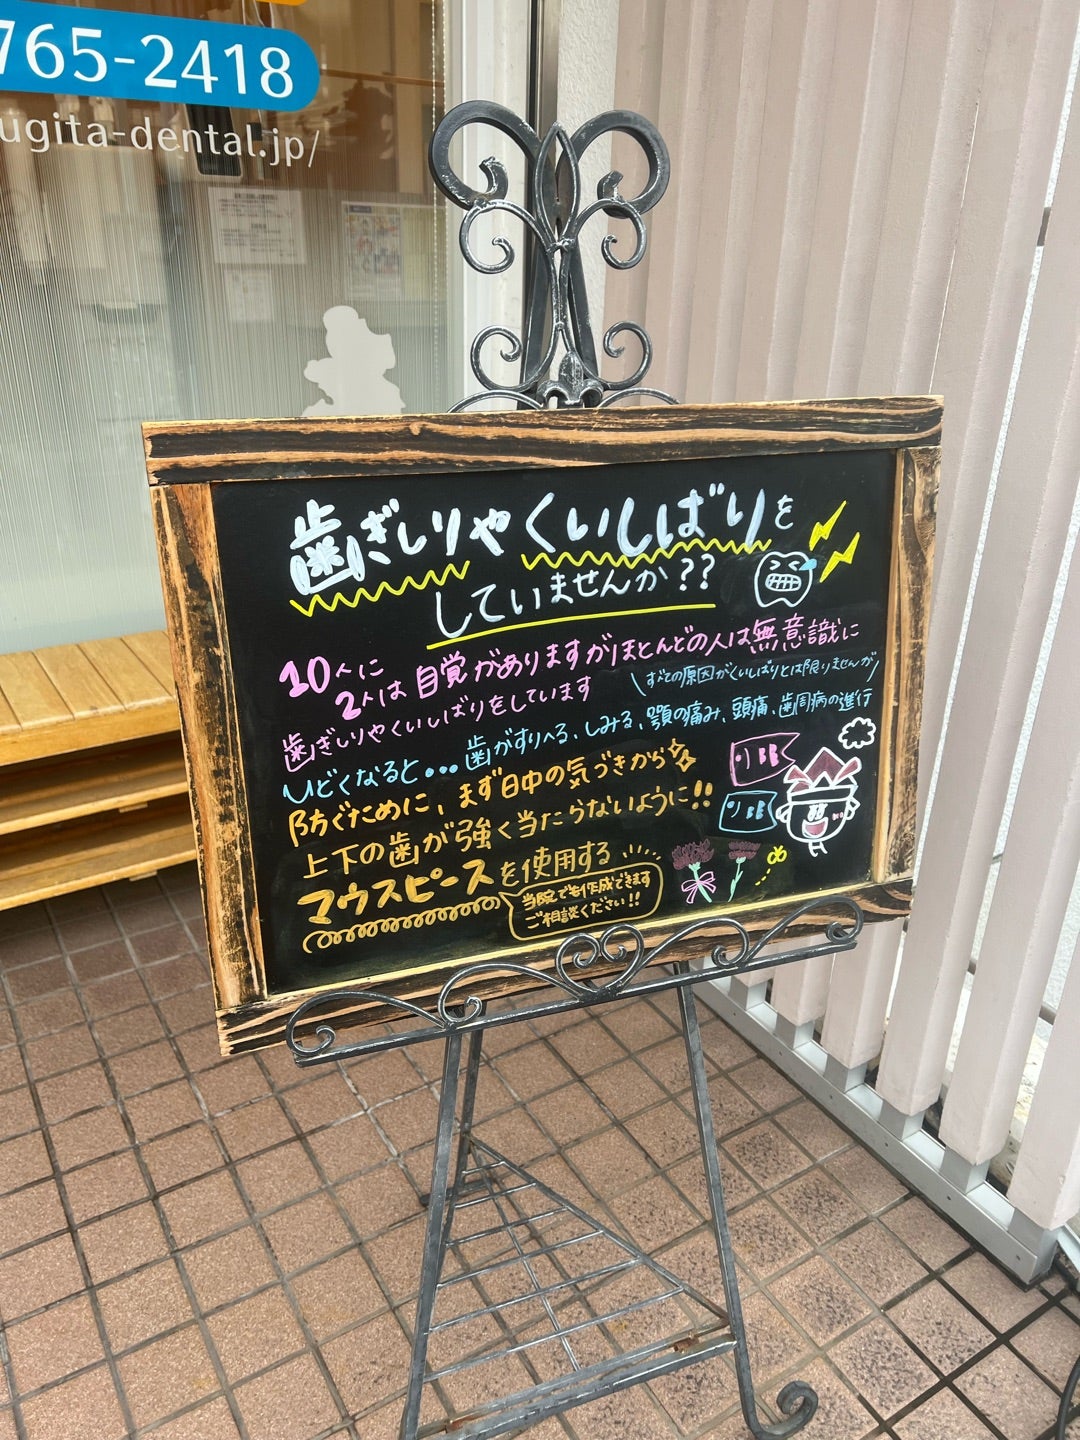 765-2418
ugita-dental.jp/
歯ぎしりやくいしばりを
していませんか??
10人に
2人は自覚がありますがほとんどの人は無意識に
歯ぎしりやくいしばりをしています
\すべての原因がくいしばりとは限りませんが/
ひどくなると•••歯がすりへる、しみる、顎の痛み、頭痛、歯周病の進行
防ぐために、まず日中の気づきから
上下の歯が強く当たらないように!!
マウスピースを使用する
当院でも作成できます
ご相談ください!!